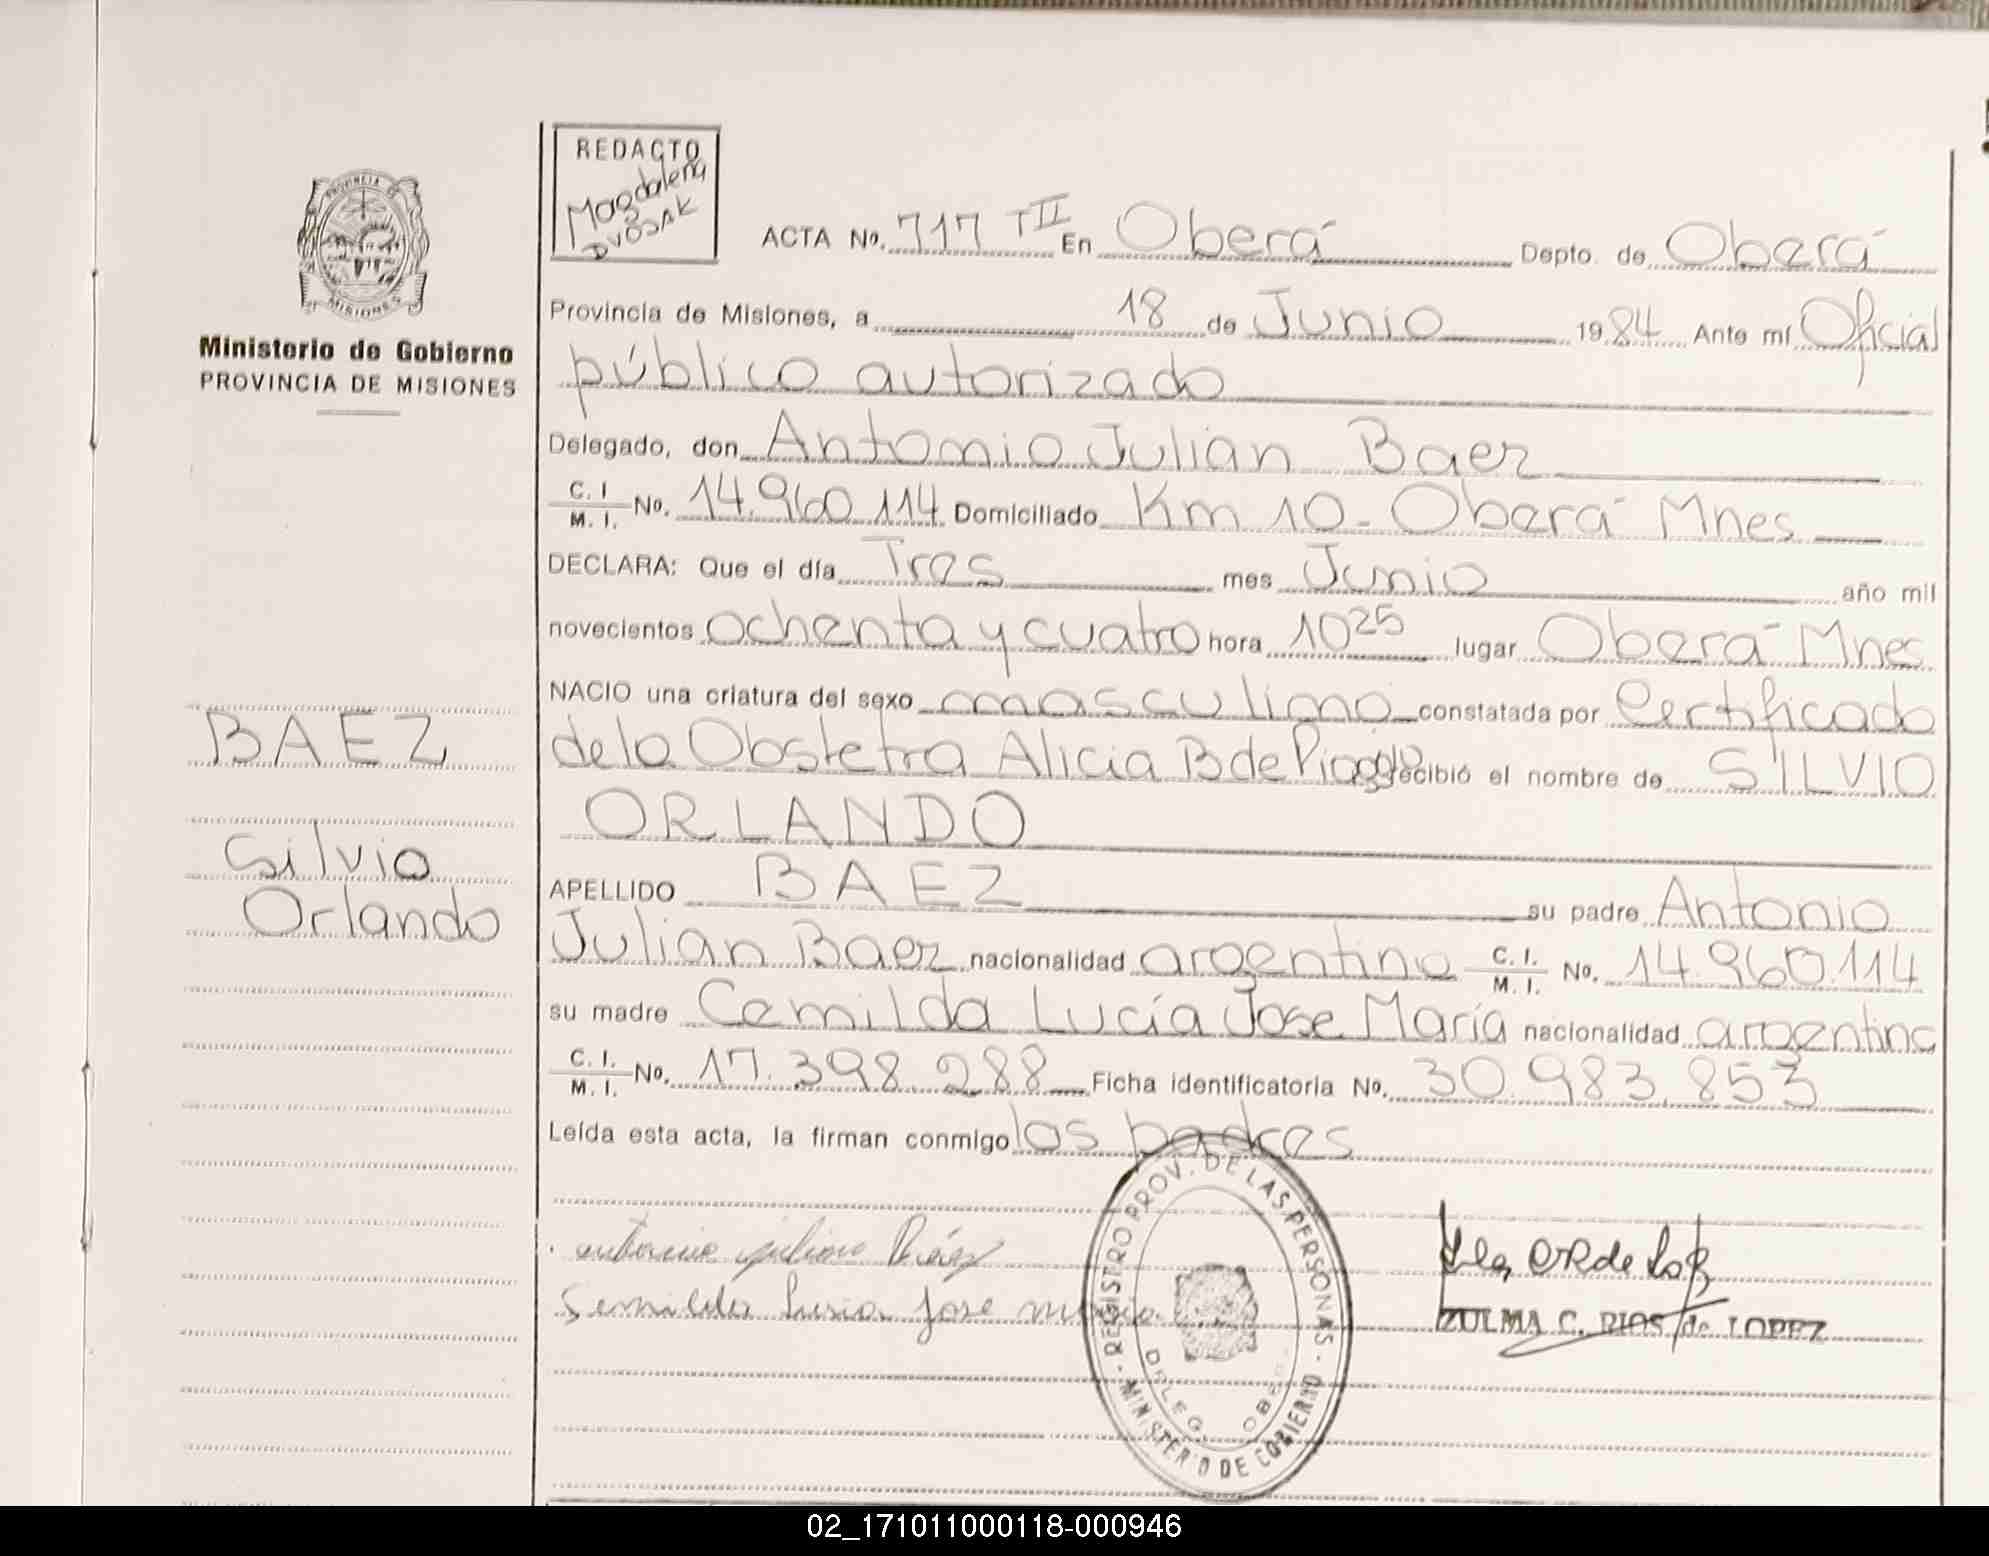 REDACTO
Magdalena
DVOSAK
PROVINCIA DE
MISIONES
Ministerio de Gobierno
PROVINCIA DE MISIONES
ACTA No. 717 TII En Oberá Depto. de Oberá
Provincia de Misiones, a 18 de Junio 1984 Ante mí Oficial
público autorizado
Delegado, don Antonio Julian Baez
C. I. M. I. No. 14.960.114 Domiciliado Km 10 - Oberá Mnes
DECLARA: Que el día Tres mes Junio año mil
novecientos ochenta y cuatro hora 10 25 lugar Oberá Mnes
NACIO una criatura del sexo masculino constatada por Certificado
de la Obstetra Alicia B de recibió el nombre de SILVIO
ORLANDO
APELLIDO BAEZ su padre Antonio
Julian Baez nacionalidad argentino C. I. M. I. No. 14.960.114
su madre Cemilda Lucía Jose María nacionalidad argentina
C. I. M. I. No. 17.398.288 Ficha identificatoria No. 30.983.853
Leída esta acta, la firman conmigo los padres
BAEZ
Silvio
Orlando
Báez
Semilda Lusia Jose
REGISTRO PROV. DE LAS PERSONAS - MINISTERIO DE GOBIERNO
DELEG. OBE
ZULMA C. RIOS de LOPEZ
02_171011000118-000946